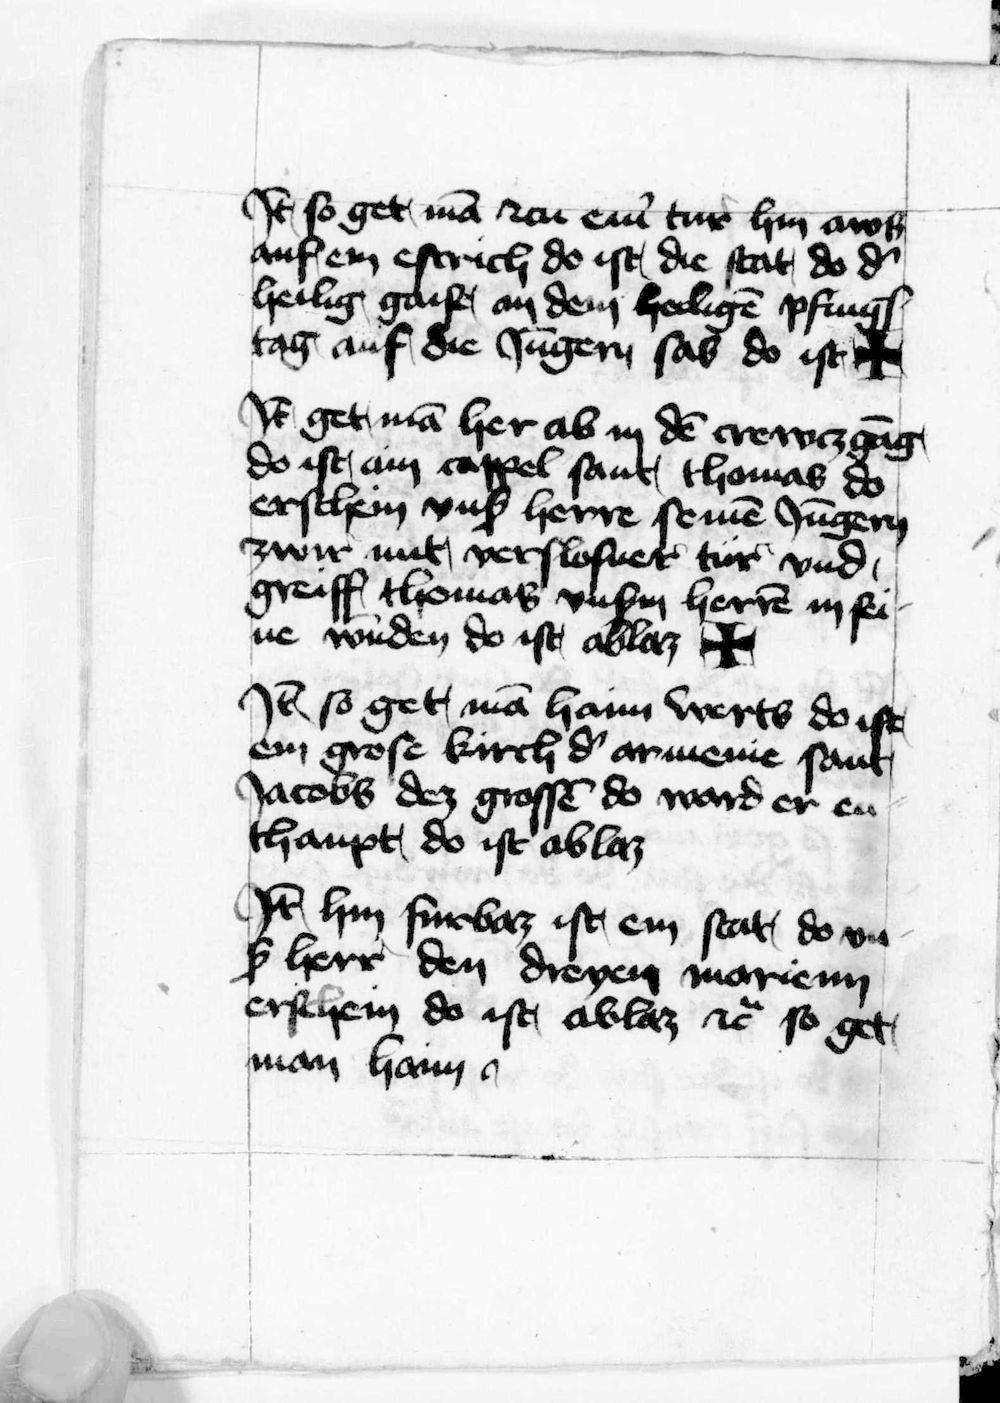 It so get mā zcu eim̄ tür hin aws
auf ein estrich do ist die stat do dʼ
heilig gaist an dem heiligē pfings
tag auf die Jūgern sas do ist ✠
It get mā her ab in dē crewczgāg
do ist ain cappel sant thomas do
erschein vnsʼ herre seinē Jūgern
zwir mit verslosner tür vnd
greiff thomas vnsʼm herrē in sei-
ne wūden do ist ablaz ✠
It so get mā haim werts do ist
ein grose kirch dʼ armenie sant
Jacobs dez grossē do ward er en-
thaupt do ist ablaz
It hin fürbaz ist ein stat do vn-
sʼ herr den dreyen marienn
erschein do ist ablaz zc̄ so get
man haim